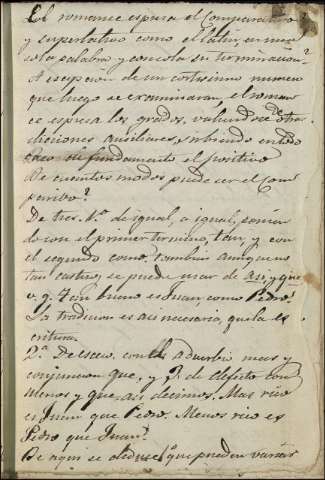 El romance espresa el Comparativo
y superlativo como el latin, en una
sola palabra, y con sola su terminacion?
A escepcion de un cortisimo numero
que luego se examinaran, el romance
espresa los grados, valiendose de otras
dicciones auxiliares, sirbiendo en todo
caso de fundamento el positivo
De cuantos modos puede ser el Com
parativo?
De tres. 1.º de igual, a igual, ponien
do con el primer termino, tan, y con
el segundo como, tambien aunque no
tan castizo, se puede usar de asi, y que
v. g. Tan bueno es Juan, como Pedro.
La traduccion es asi necesaria, que la es
critura.
2.º De esceso, con el adverbio mas y
conjuncion que, y 3.º de defecto con
menos y que, asi decimos. Mas rico
es Juan que Pedro. Menos rico es
Pedro que Juan.
De aqui se deduce, que pueden variar